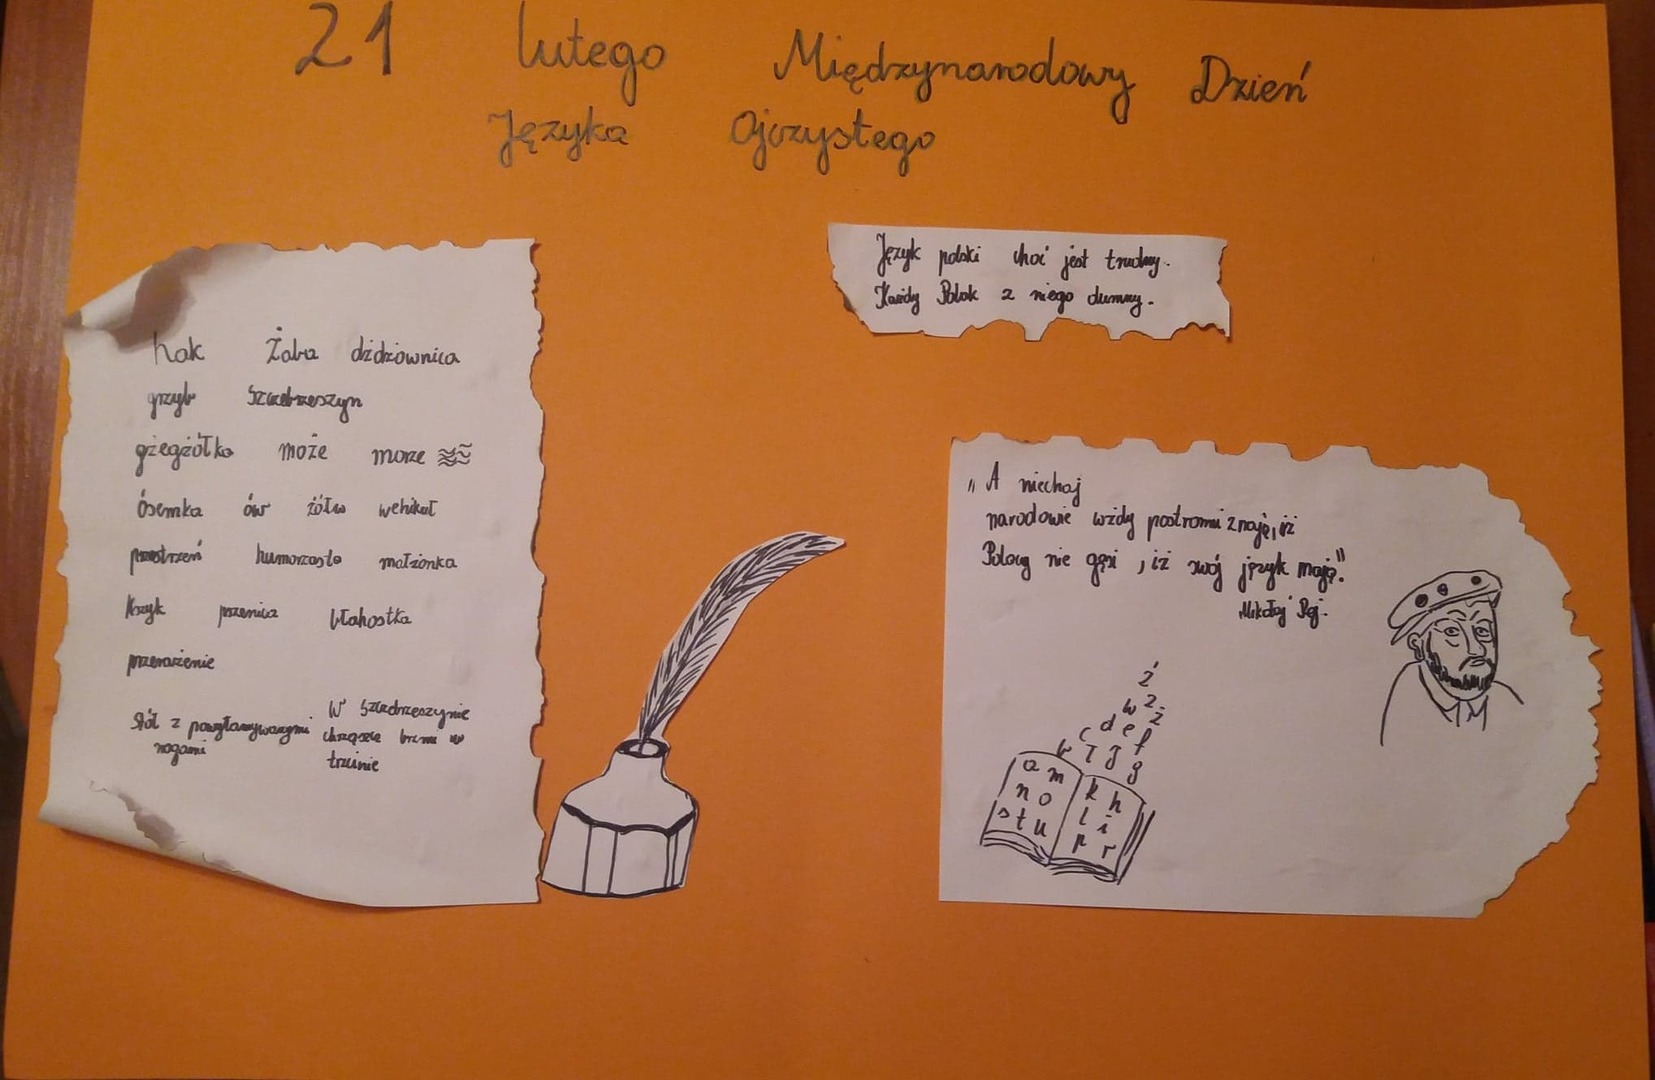 21 lutego Międzynarodowy Dzień
Języka Ojczystego
Język polski choć jest trudny.
Każdy Polak z niego dumny.
hak Żaba dżdżownica
grzyb Szczebrzeszyn
gżegżółka może morze
ósemka ów żółw wehikuł
przestrzeń humorzasta małżonka
krzyk pszenica
przerażenie
Stół z powyłamywanymi
nogami
W Szczebrzeszynie
chrząszcz brzmi w
trzcinie
„A niechaj
narodowie wżdy postronni znają, iż
Polacy nie gęsi, iż swój język mają."
Mikołaj Rej.
ź
w z ż
c d e f
b j g
a m k h
n o l i
s t u p r